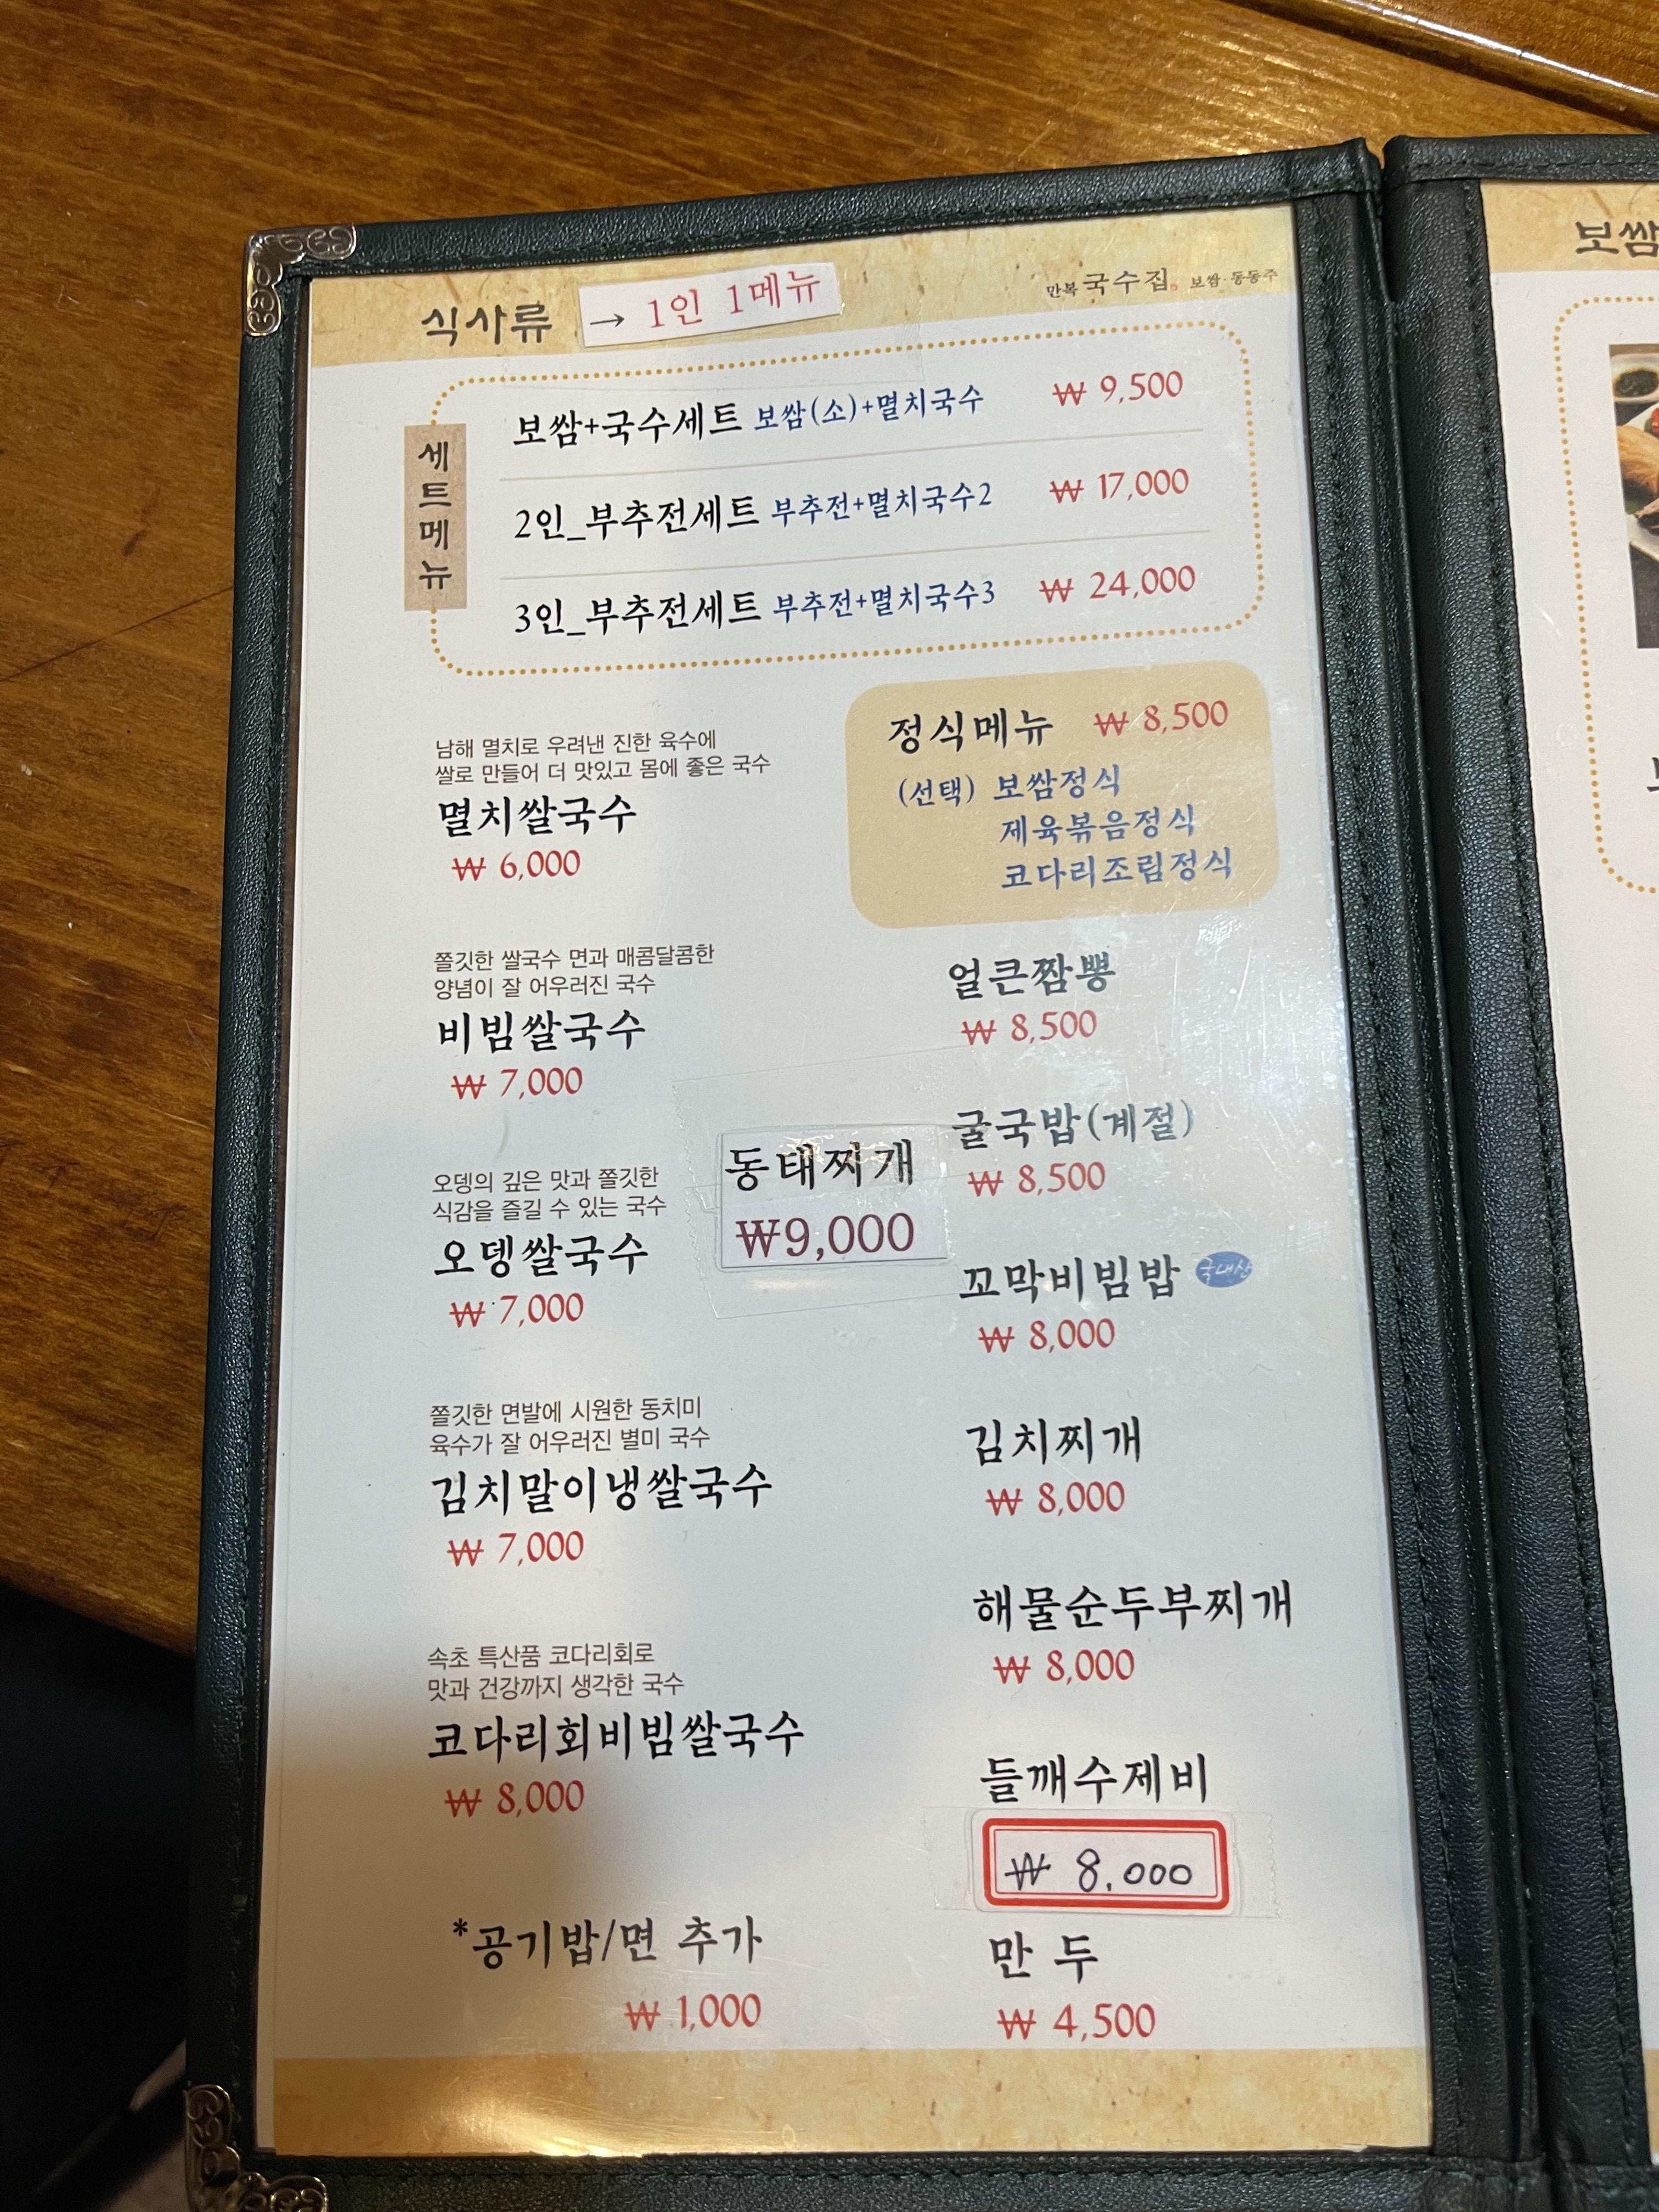 식사류 → 1인 1메뉴
만복 국수집 보쌈·동동주
세트메뉴
보쌈+국수세트 보쌈(소)+멸치국수 ₩ 9,500
2인_부추전세트 부추전+멸치국수2 ₩ 17,000
3인_부추전세트 부추전+멸치국수3 ₩ 24,000
남해 멸치로 우려낸 진한 육수에
쌀로 만들어 더 맛있고 몸에 좋은 국수
멸치쌀국수
₩ 6,000
쫄깃한 쌀국수 면과 매콤달콤한
양념이 잘 어우러진 국수
비빔쌀국수
₩ 7,000
오뎅의 깊은 맛과 쫄깃한
식감을 즐길 수 있는 국수
오뎅쌀국수
₩ 7,000
쫄깃한 면발에 시원한 동치미
육수가 잘 어우러진 별미 국수
김치말이냉쌀국수
₩ 7,000
속초 특산품 코다리회로
맛과 건강까지 생각한 국수
코다리회비빔쌀국수
₩ 8,000
*공기밥/면 추가
₩ 1,000
동태찌개
₩9,000
정식메뉴 ₩ 8,500
(선택) 보쌈정식
제육볶음정식
코다리조림정식
얼큰짬뽕
₩ 8,500
굴국밥(계절)
₩ 8,500
꼬막비빔밥 국내산
₩ 8,000
김치찌개
₩ 8,000
해물순두부찌개
₩ 8,000
들깨수제비
₩ 8.000
만 두
₩ 4,500
보쌈